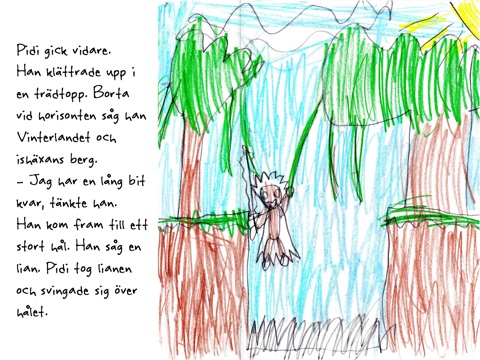 Pidi gick vidare.
Han klättrade upp i
en trädtopp. Borta
vid horisonten såg han
Vinterlandet och
ishäxans berg.
– Jag har en lång bit
kvar, tänkte han.
Han kom fram till ett
stort hål. Han såg en
lian. Pidi tog lianen
och svingade sig över
hålet.